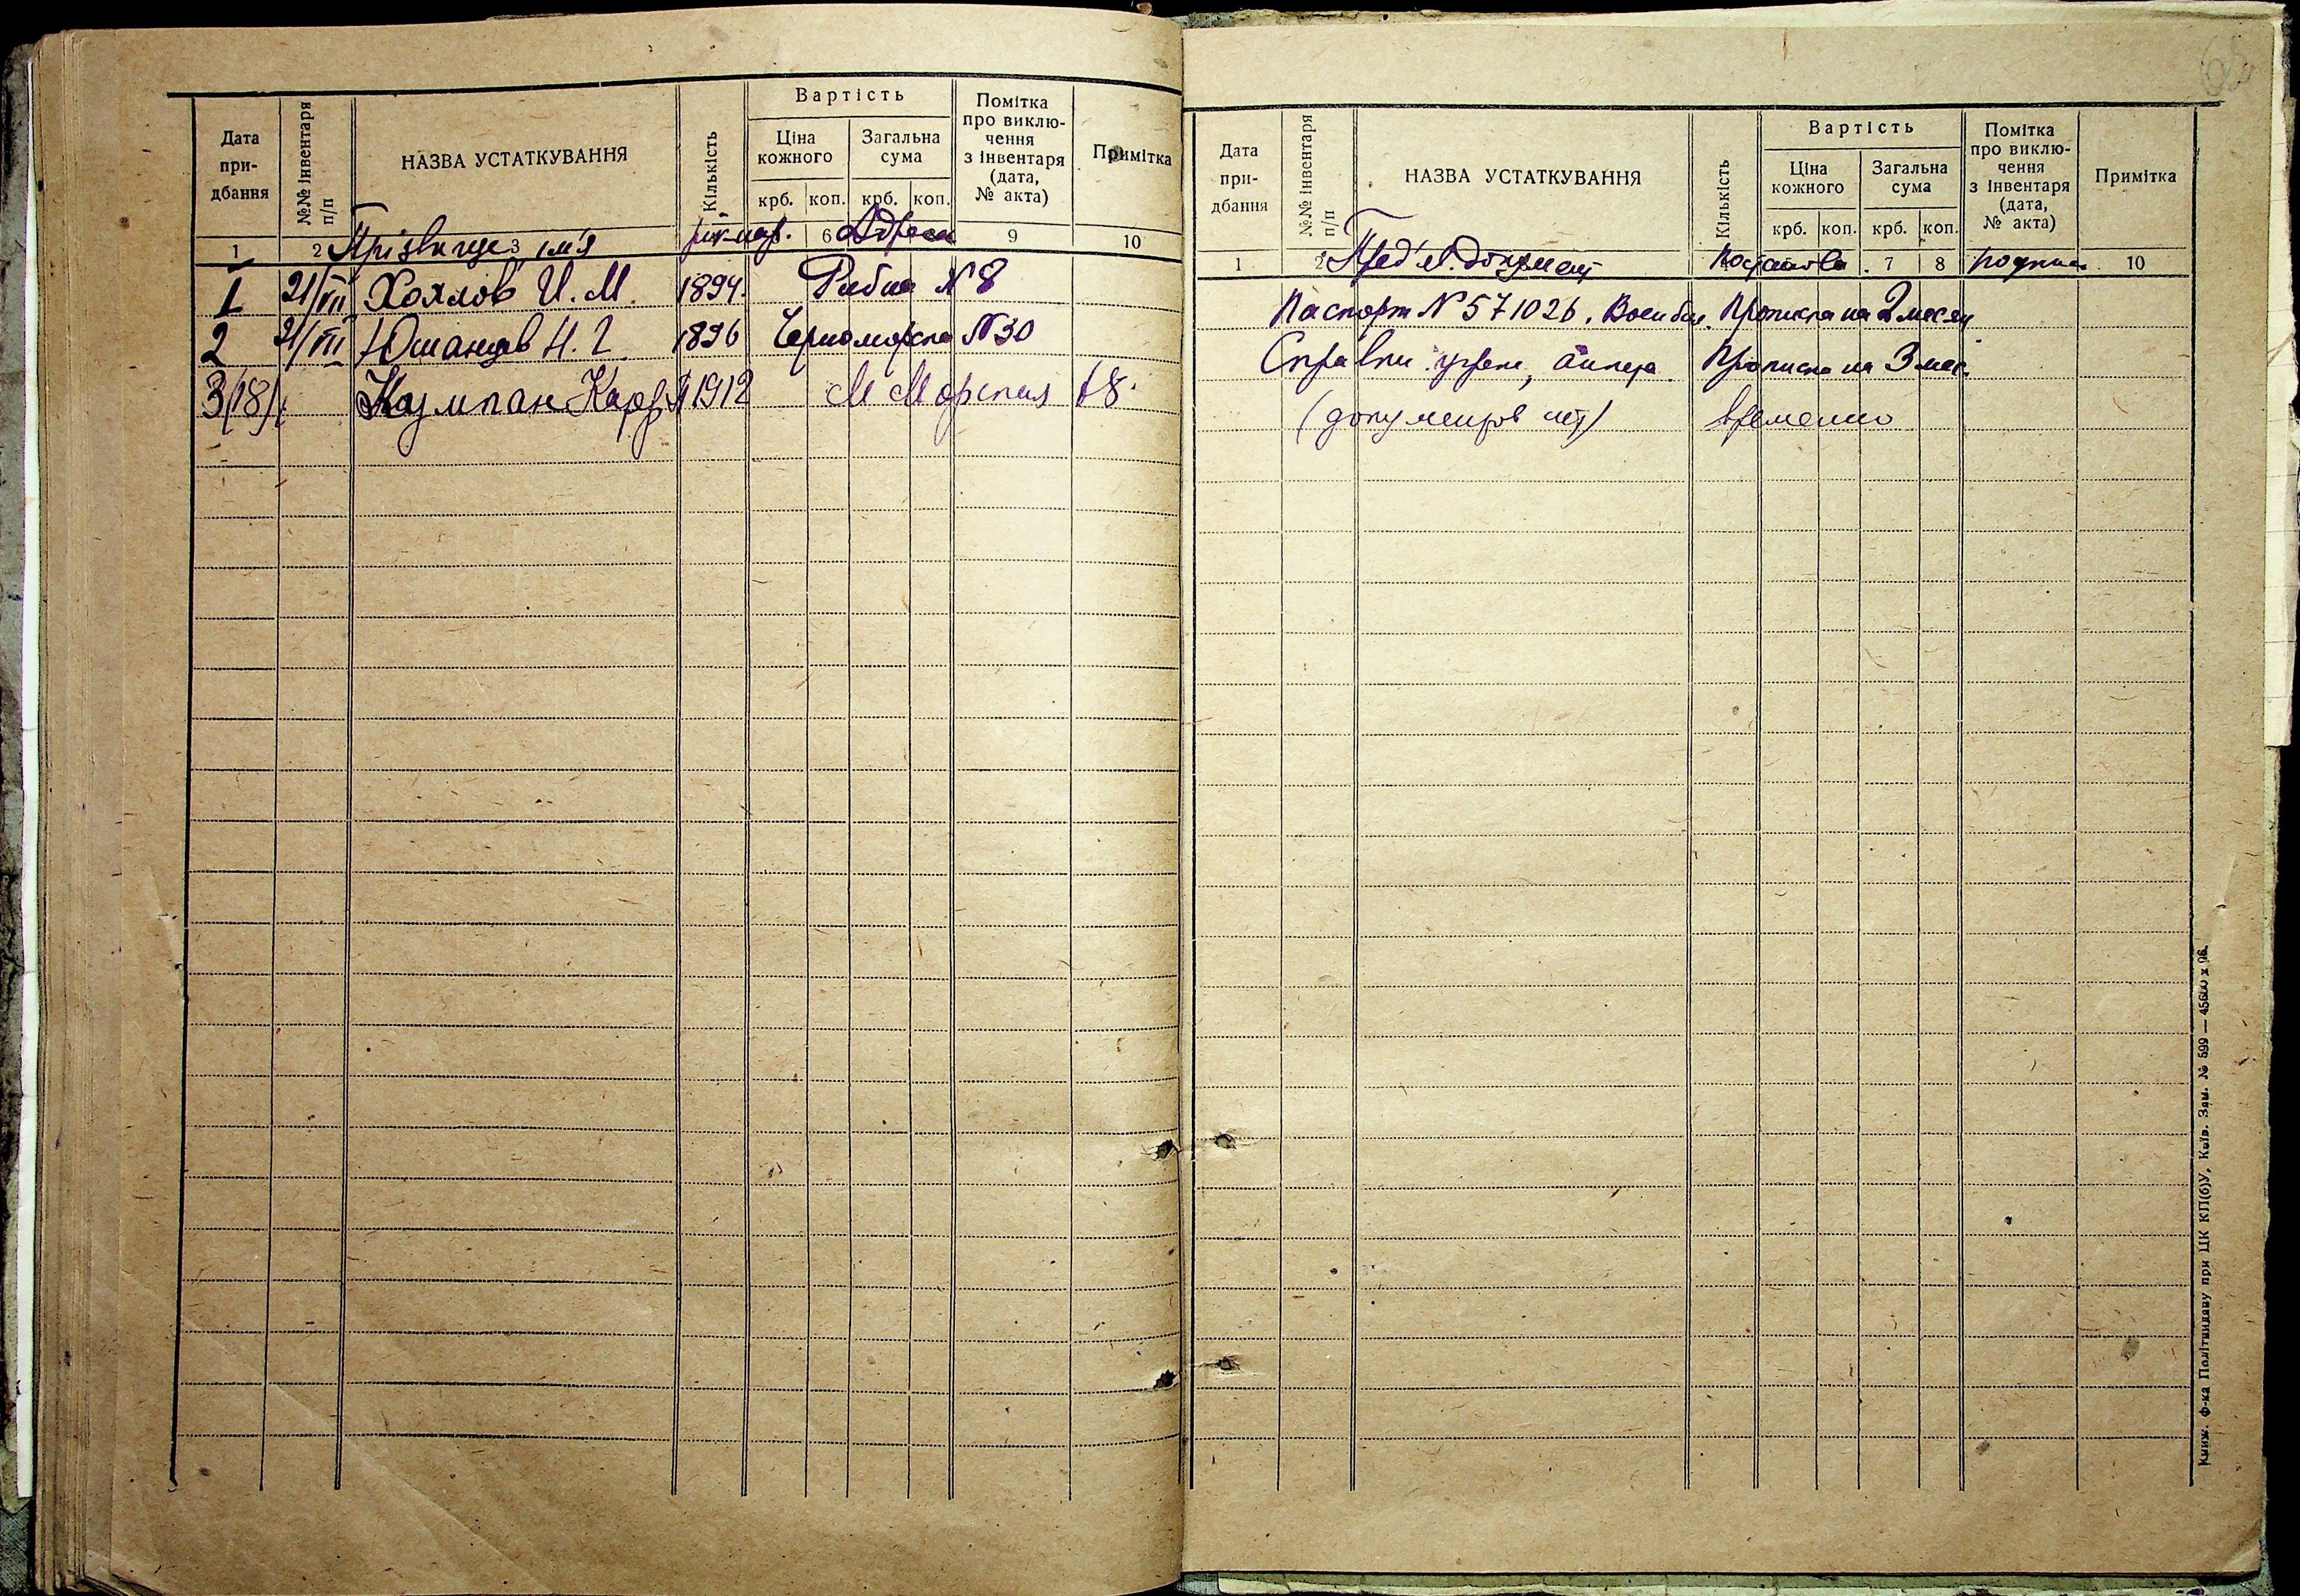 65
Дата при-дбання
№№ інвентаря п/п
НАЗВА УСТАТКУВАННЯ
Кількість
Вартість
Ціна кожного
Загальна сума
крб. коп. крб. коп.
Помітка про виклю-чення з інвентаря (дата, № акта)
Примітка
1 2 3 6 9 10
Прізвище, ім'я рік нар. Адреса
1 21/VII Хохлов И. М. 1894. Рибна № 8
2 21/VII Юшанцев Н. Г. 1896 Черноморска № 30
3(18) Карл 1912 М Морская 68
Дата при-дбання
№№ інвентаря п/п
НАЗВА УСТАТКУВАННЯ
Кількість
Вартість
Ціна кожного
Загальна сума
крб. коп. крб. коп.
Помітка про виклю-чення з інвентаря (дата, № акта)
Примітка
1 2 7 8 10
Пред'яв. документ Постанова подпис
Паспорт № 571026. Воен бил. Прописка на 2 месяц
Справки анкета Прописка на 3 мес.
(документов нет) временно
Книж. ф-ка Політвидаву при ЦК КП(б)У, Київ. Зам. № 599 — 45600 х 96.